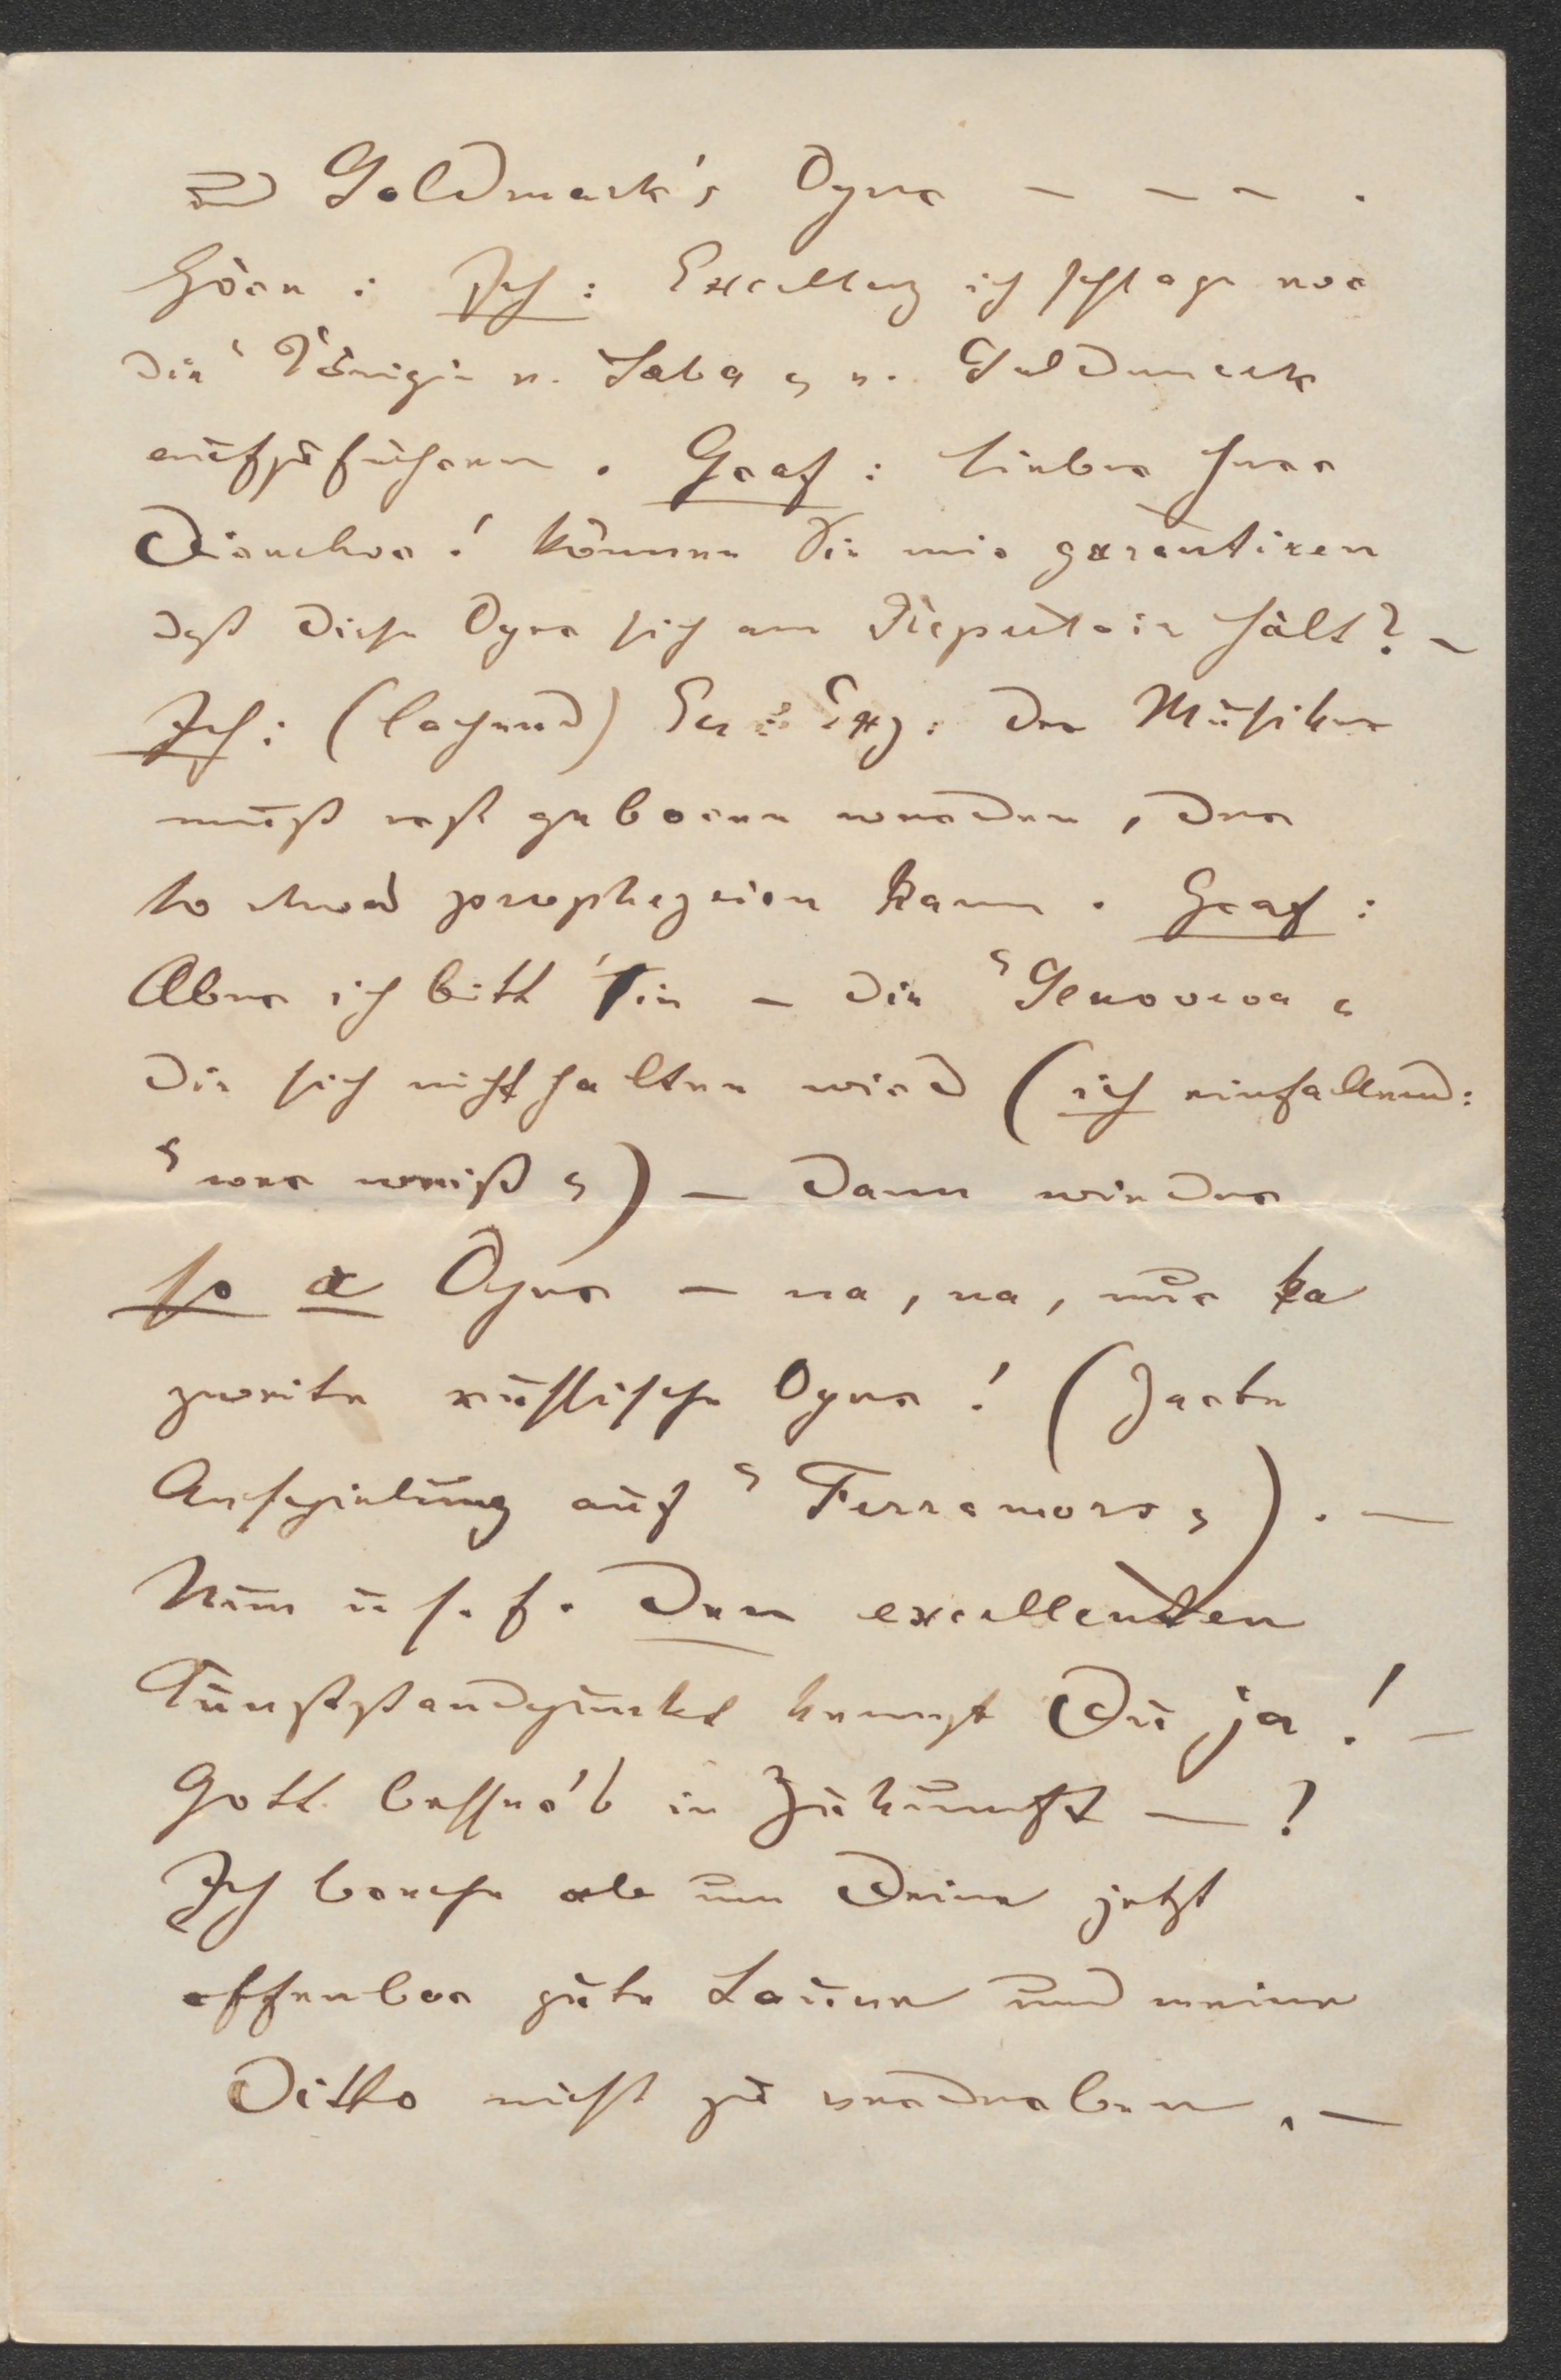 und Goldmark's Oper — — — .
Hörn : Ich : Excellenz ich schlage vor
die „Königin v. Saba„ v. Goldmark
aufzuführen . Graf : lieber Herr
Director ! können Sie mir garantiren
daß diese Oper sich am Repertoir hält ? —
Ich : (lachend) Exz : der Musiker
muß erst geboren werden , der
so etwas prophezeien kann . Graf :
Aber ich bitt' Sie — die „Genoveva„
die sich nicht halten wird ( ich einfallend :
„wer weiß„ ) — dann wieder
so a Oper — na , na , nur ka
zweite russische Oper ! ( Zarte
Anspielung auf „Ferramors„ ) . —
Nun u s. f. Den excellenten
Kunststandpunkt kennst Du ja ! —
Gott besser's in Zukunft — !
Ich breche ab um Deine jetzt
offenbar gute Laune und meine
Ditto nicht zu verderben . —